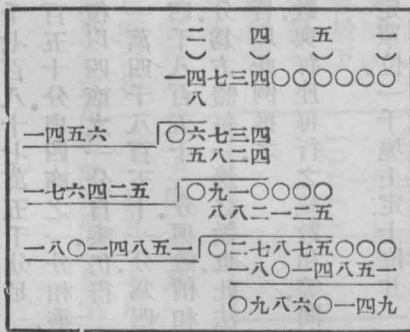 二 四 五 一
一四七三四〇〇〇〇〇〇
八
一四五六 〇六七三四
五八二四
一七六四二五 〇九一〇〇〇〇
八八二一二五
一八〇一四八五一 〇二七八七五〇〇〇
一八〇一四八五一
〇九八六〇一四九